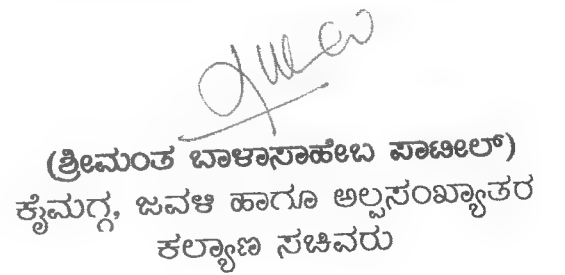 (ಶ್ರೀಮಂತ ಬಾಳಾಸಾಹೇಬ ಪಾಟೀಲ್)
ಕೈಮಗ್ಗ, ಜವಳಿ ಹಾಗೂ ಅಲ್ಪಸಂಖ್ಯಾತರ
ಕಲ್ಯಾಣ ಸಚಿವರು